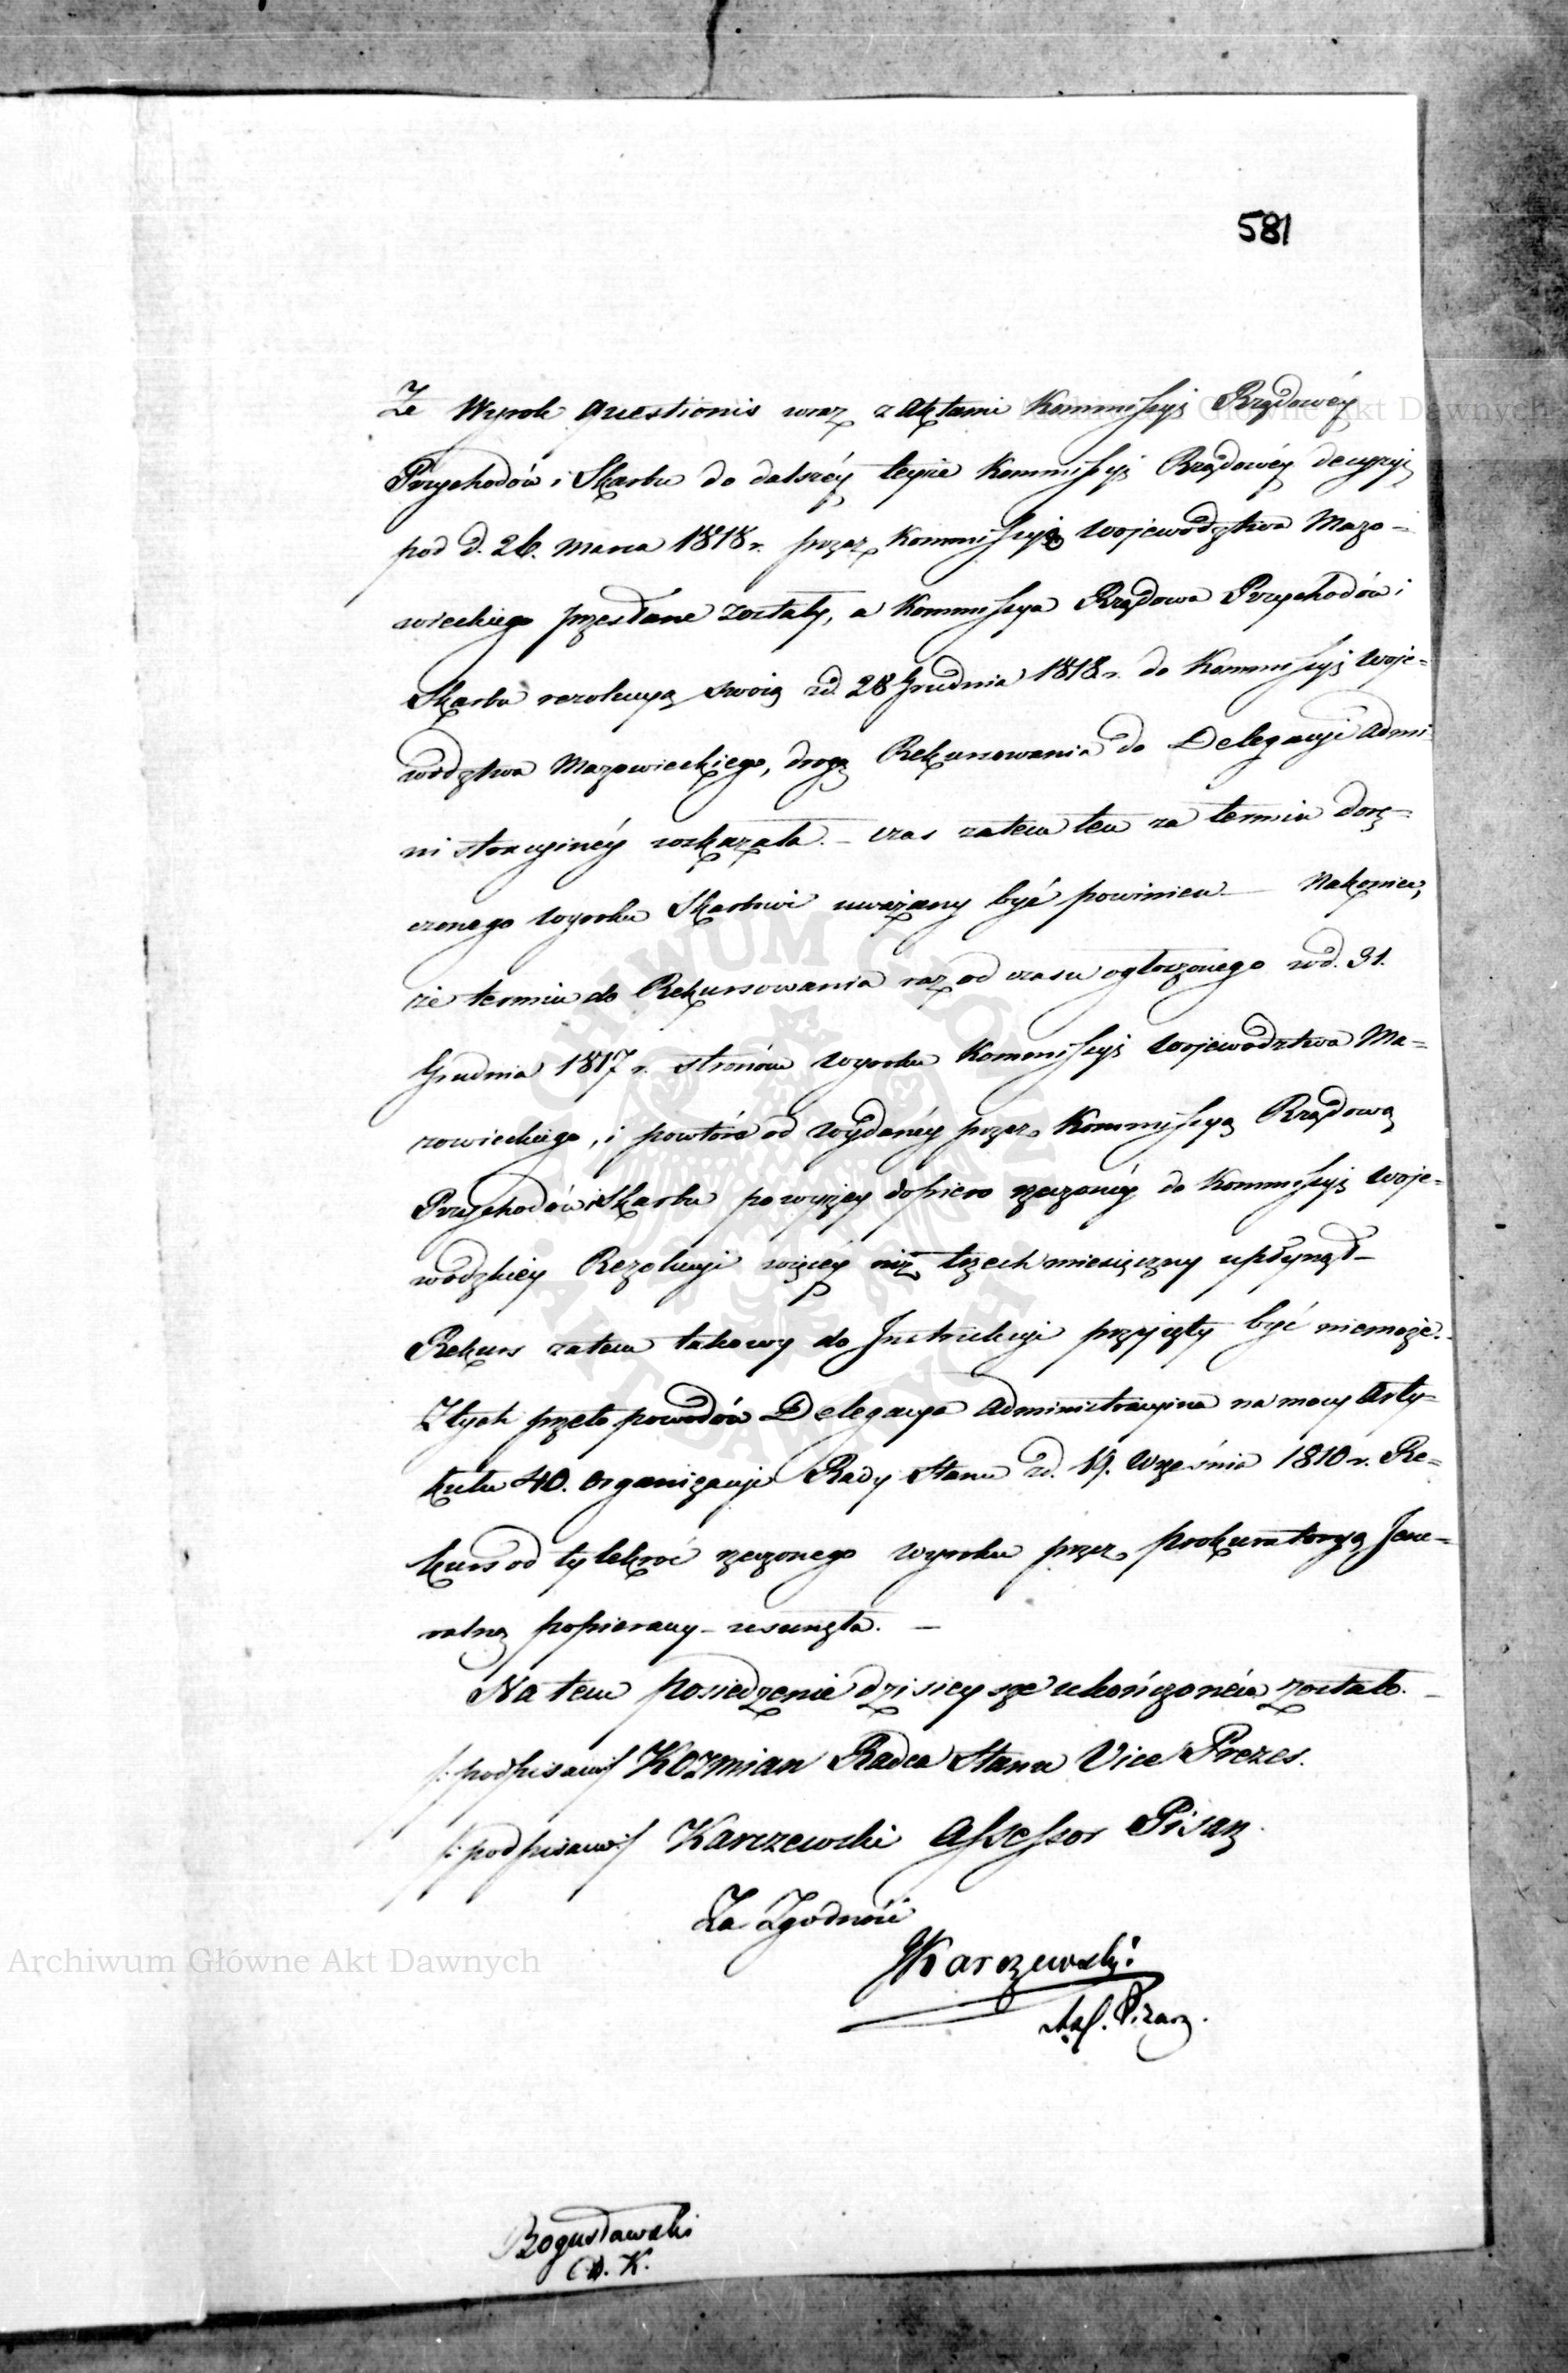 581
Że Wyrok questionis wraz z Aktami Kommissyi Rządowéy
Przychodów i Skarbu do dalszéy teyże Kommissyi Rządowéy decyzyi
pod d. 26. Marca 1818 r. przez Kommissyią Województwa Mazo-
wieckiego przesłane zostały, a Kommissya Rządowa Przychodów i
Skarbu rezolucyą swoią z d. 28 Grudnia 1818 r. do Kommissyi Woje-
wództwa Mazowieckiego, drogą Rekursowania do Delegacyi Admi-
nistracyinéy wskazała. – czas zatem ten za termin dorę-
czonego Wyroku Skarbowi uważany być powinien – Nakoniec,
że termin do Rekursowania raz od czasu ogłoszonego w d. 31.
Grudnia 1817 r. stronóm Wyroku Kommissyi Województwa Ma-
zowieckiego, i powtóre od wydanéy przez Kommissyą Rządową
Przychodów i Skarbu powyżey dopiero rzeczonéy do Kommissyi Woje-
wodzkiey Rezolucyi więcéy niż trzech miesięczny upłynął –
Rekurs zatem takowy do Instrukcyi przyięty być niemoże. –
Z tych przeto powodów Delegacya Administracyina na mocy Arty-
kułu 40. Organizacyi Rady Stanu z d. 19. Września 1810 r. Re-
kurs od tylekroć rzeczonego Wyroku przez prokuratoryą Jene-
ralną popierany – usunęła. –
Na tem posiedzenie dzisieysze ukończoném zostało. –
/: podpisano :/ Kozmian Radca Stanu Vice Prezes.
/: podpisano :/ Karczewski Assessor Pisarz.
Za Zgodność
Karczewski
Ass. Pisarz.
Bogusławski
K.
Archiwum Główne Akt Dawnych
Archiwum Główne Akt Dawnych
ARCHIWUM GŁÓWNE · AKT DAWNYCH ·